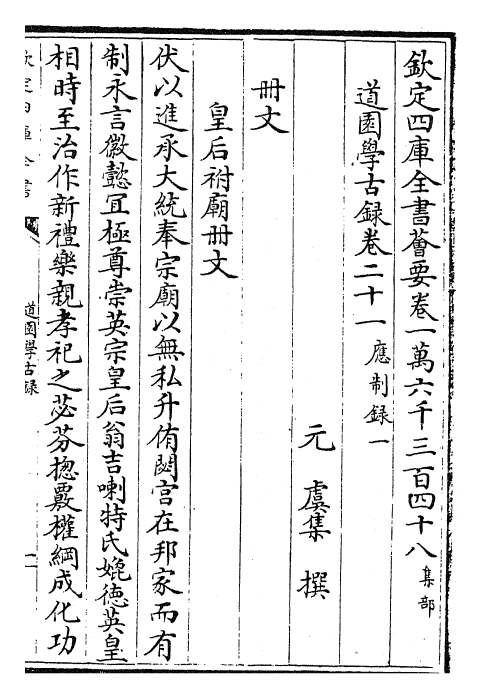 欽定四庫全書薈要卷一萬六千三百四十八 集部
道園學古録卷二十一 應制録一
元 虞集 撰
冊文
皇后祔廟冊文
伏以進承大統奉宗廟以無私升侑閟宮在邦家而有
制永言徽懿冝極尊崇英宗皇后翁吉喇特氏媲徳英皇
相時至治作新禮樂親孝祀之苾芬揔覈權綱成化功
道園學古録